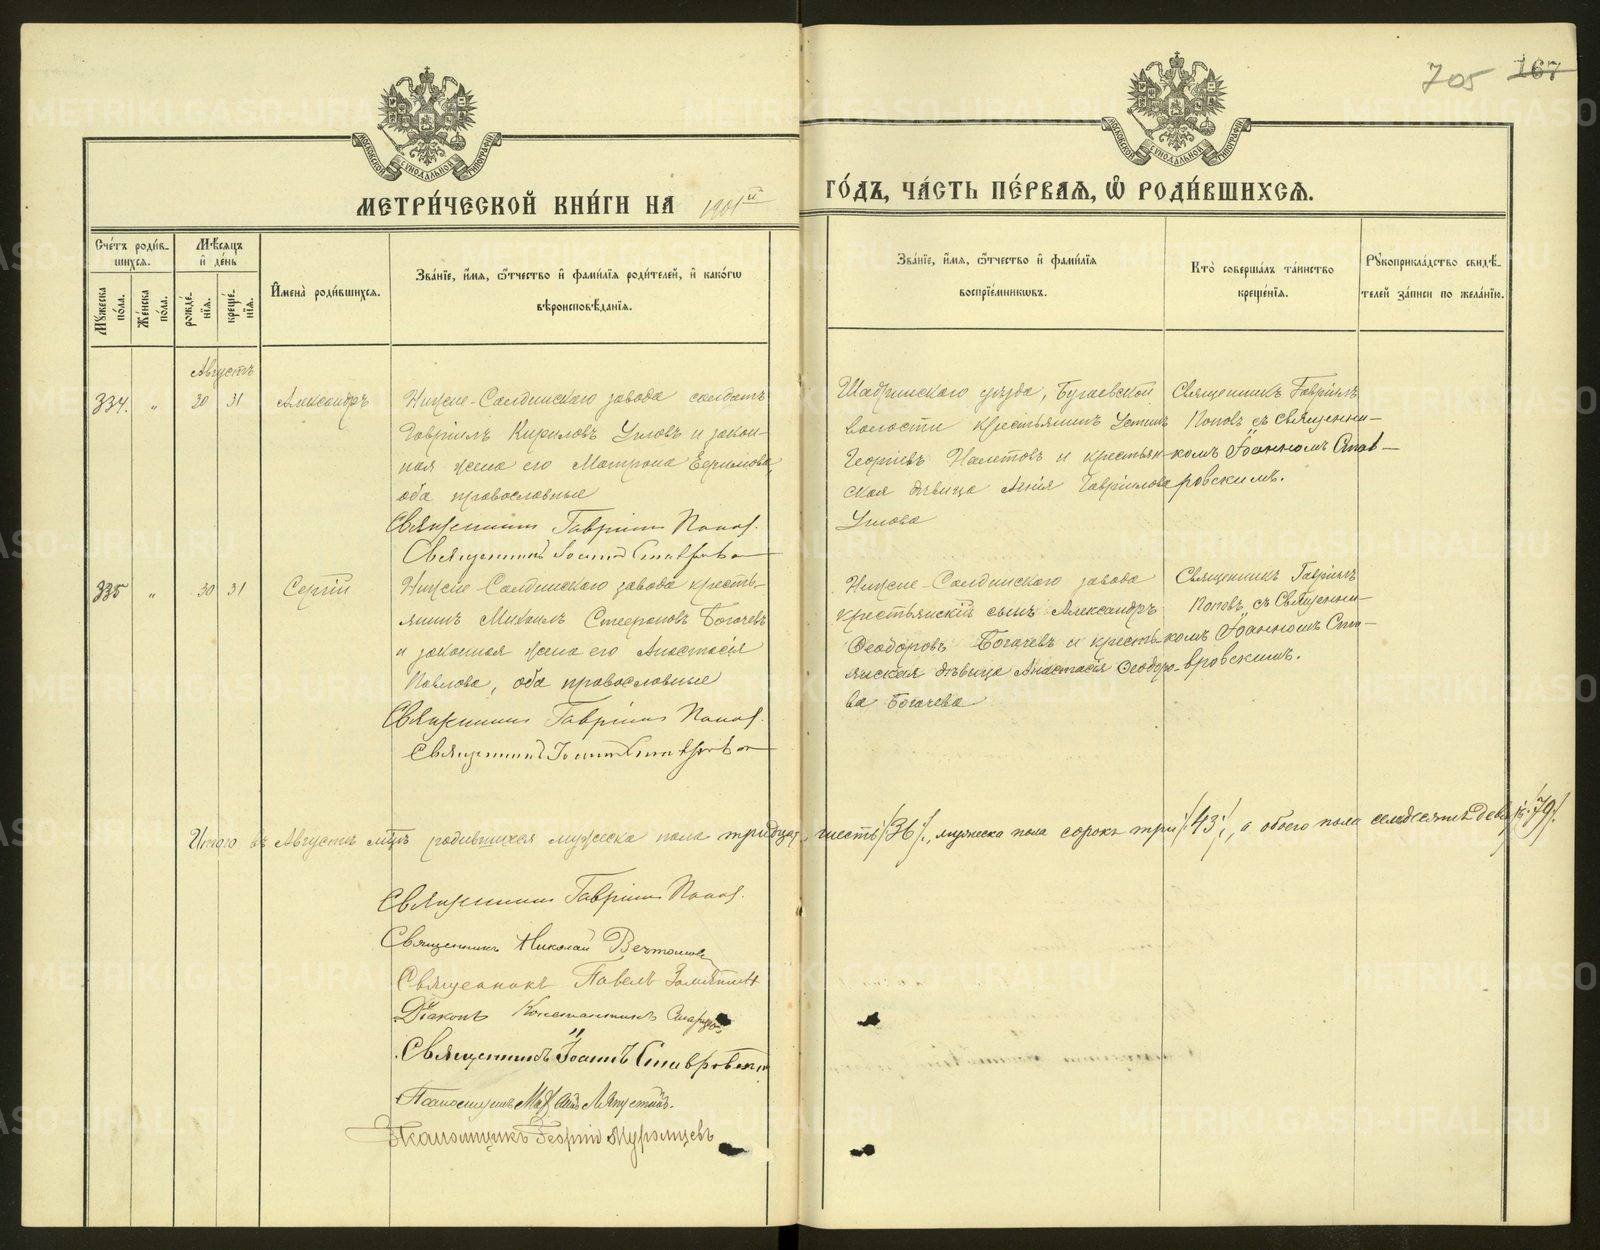 705 167
МЕТРИ́ЧЕСКОЙ КНИ́ГИ НА 1901й ГО́ДЪ, ЧА́СТЬ ПЕ́РВАѦ, Ѡ РОДИ́ВШИХСѦ.
Сче́тъ роди́в-
шихсѧ.
Мꙋжеска по́ла.
Же́нска по́ла.
Мѣ́сѧцъ
и де́нь
рожде́-
нїѧ.
креще́-
нїѧ.
Имена̀ роди́вшихсѧ.
Зва́нїе, и́мѧ, ѻ́тчество и фами́лїѧ роди́телей, и како́гѡ
вѣроисповѣ́данїѧ.
Зва́нїе, и́мѧ, ѻ́тчество и фами́лїѧ
воспрїе́мникѡвъ.
Кто̀ соверша́лъ та́инство
креще́нїѧ.
Рꙋкоприкла́дство свидѣ́-
телей за́писи по жела́нїю.
Августъ
334. „ 30 31 Александръ
Нижне-Салдинскаго завода солдатъ
Гавріилъ Кириловъ Угловъ и закон-
ная жена его Матрона Ефимова,
оба православные
Священникъ Гавріилъ Поповъ.
Священникъ Іоаннъ Ставровскій
Шадринскаго уѣзда, Бугаевской
волости крестьянинъ Устинъ
Георгіевъ Налетовъ и крестьян-
ская дѣвица Анна Гавріилова
Углова
Священникъ Гавріилъ
Поповъ съ священни-
комъ Іоанномъ Став-
ровскимъ.
335 „ 30 31 Сергій
Нижне-Салдинскаго завода кресть-
янинъ Михаилъ Стефановъ Богачевъ
и законная жена его Анастасія
Павлова, оба православные
Священникъ Гавріилъ Поповъ.
Священникъ Іоаннъ Ставровскій
Нижне-Салдинскаго завода
крестьянскій сынъ Александръ
Ѳеодоровъ Богачевъ и кресть-
янская дѣвица Анастасія Ѳеодоро-
ва Богачева
Священникъ Гавріилъ
Поповъ съ Священни-
комъ Іоанномъ Ста-
вровскимъ.
Итого въ Августѣ мцѣ родившихся мужеска пола тридцать шесть /36/, женска пола сорокъ три /43/, а обоего пола семьдесятъ девять /79/.
Священникъ Гавріилъ Поповъ.
Священникъ Николай
Священникъ Павелъ
Діаконъ Константинъ
Священникъ Іоаннъ Ставровскій
Псаломщикъ
Псаломщикъ Георгій Муромцевъ
METRIKI.GASO-URAL.RU